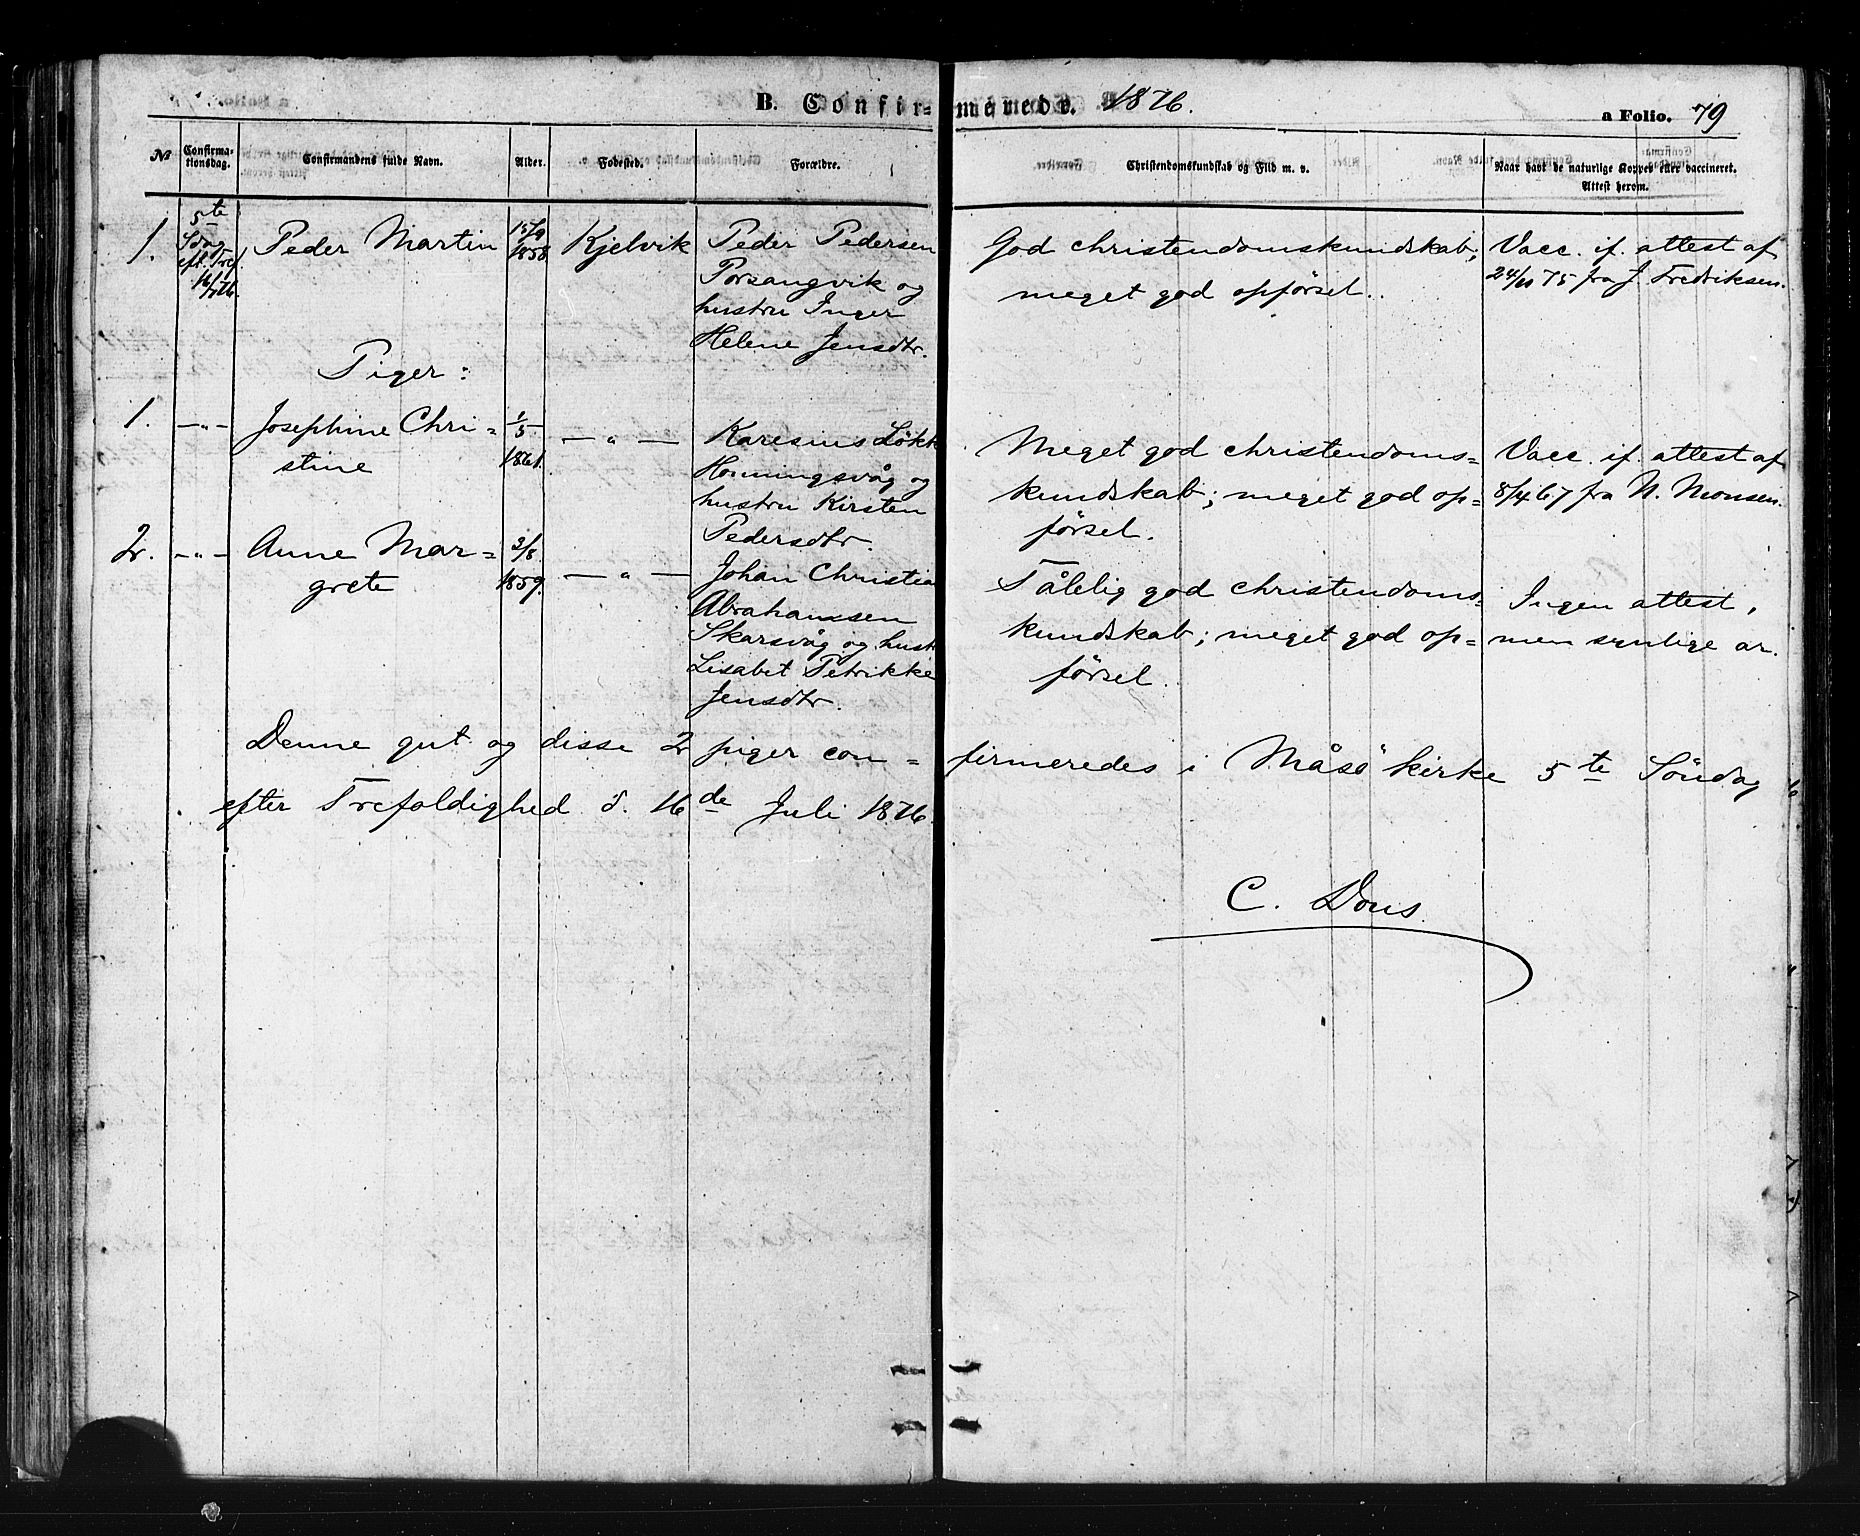 B. Confirmerede. 1876. a Folio. 79
No Confirmationsdag. Confirmandens fulde Navn. Alder. Fodested. Forældre. Christendomskundskab og Flid m. v. Naar havt de naturlige Kopper eller vaccineret. Attest herom.
1. 5te Sdag eft. Tref. 16/7 76. Peder Martin 15/9 1858 Kjelvik Peder Pedersen
Porsangvik og
hustru Inger
Helene Jensdtr.
God christendomskundskab;
meget god opförsel.
Vacc. if. attest af
24/10 75 fra J. Fredriksen.
Piger:
1. —"— Josephine Chri=
stine
1/5 1861. —"— Karesius Løkk
Honningsvåg og
hustru Kirsten
Pedersdtr.
Meget god christendoms=
kundskab; meget god op=
førsel.
Vacc. if. attest af
8/4 67 fra N. Monsen.
2. —"— Anne Mar=
grete
3/8 1859. —"— Johan Christia
Abrahamssen
Skarsvåg og hust
Lisabet Petrikke
Jensdtr.
Tålelig god christendoms=
kundskab; meget god op=
førsel.
Ingen attest,
men synlige ar.
Denne gut og disse 2 piger con=firmeredes i Måsö kirke 5te Söndag
efter Trefoldighed d. 16de Juli 1876.
C. Dons